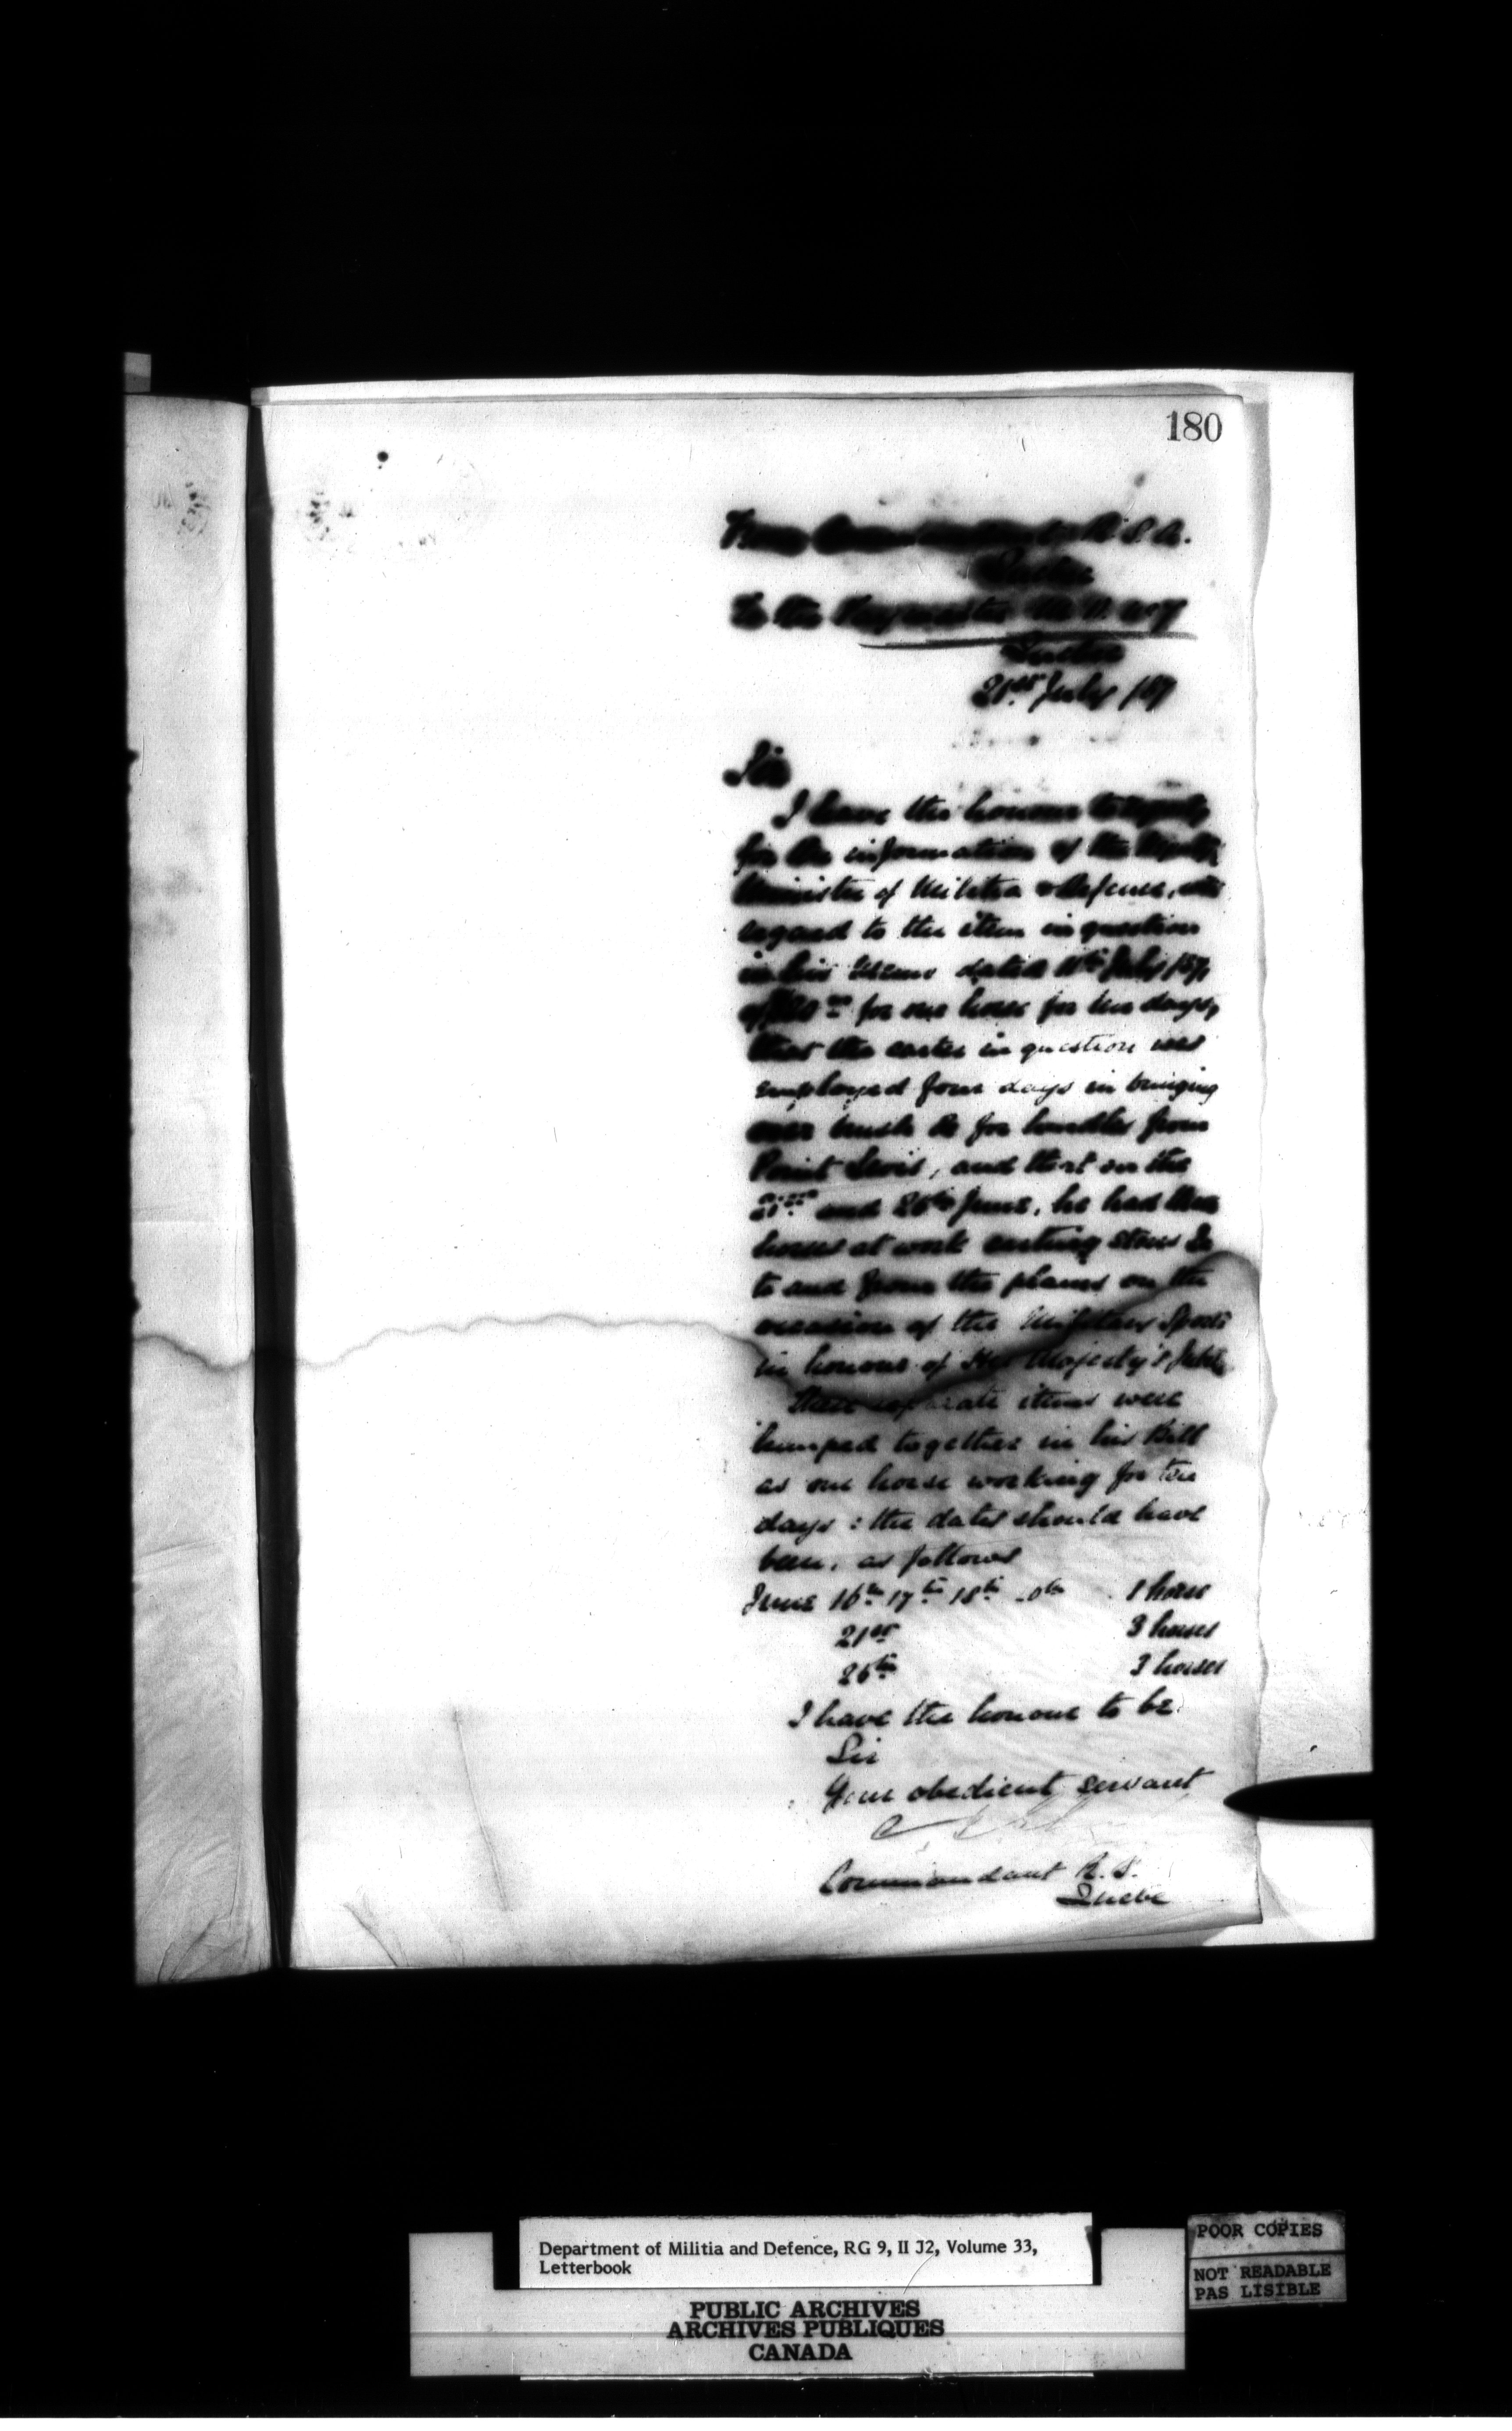 180
From Commandant R.S.A.
Quebec
To the Paymaster M.D. No 7
Quebec
21st July /87
Sir
I have the honour to report,
for the information of the Deputy
Minister of Militia & Defence, with
regard to the item in question
in his memo dated July /87,
for one horse for ten days,
that the carter in question was
employed four days in bringing
over brush &c for hurdles from
Point Levis, and that on the
21st and 26th June, he had three
horses at work carting stores &c
to and from the plains on the
occasion of the Military Sports
in honour of Her Majesty's Jubilee
These separate items were
lumped together in his Bill
as one horse working for ten
days : the dates should have
been, as follows
June 16th 17th 18th 1 horse
21st 3 horses
26th 3 horses
I have the honour to be
Sir
Your obedient servant
Commandant R. S.
Quebe
Department of Militia and Defence, RG 9, II J2, Volume 33,
Letterbook
PUBLIC ARCHIVES
ARCHIVES PUBLIQUES
CANADA
POOR COPIES
NOT READABLE
PAS LISIBLE